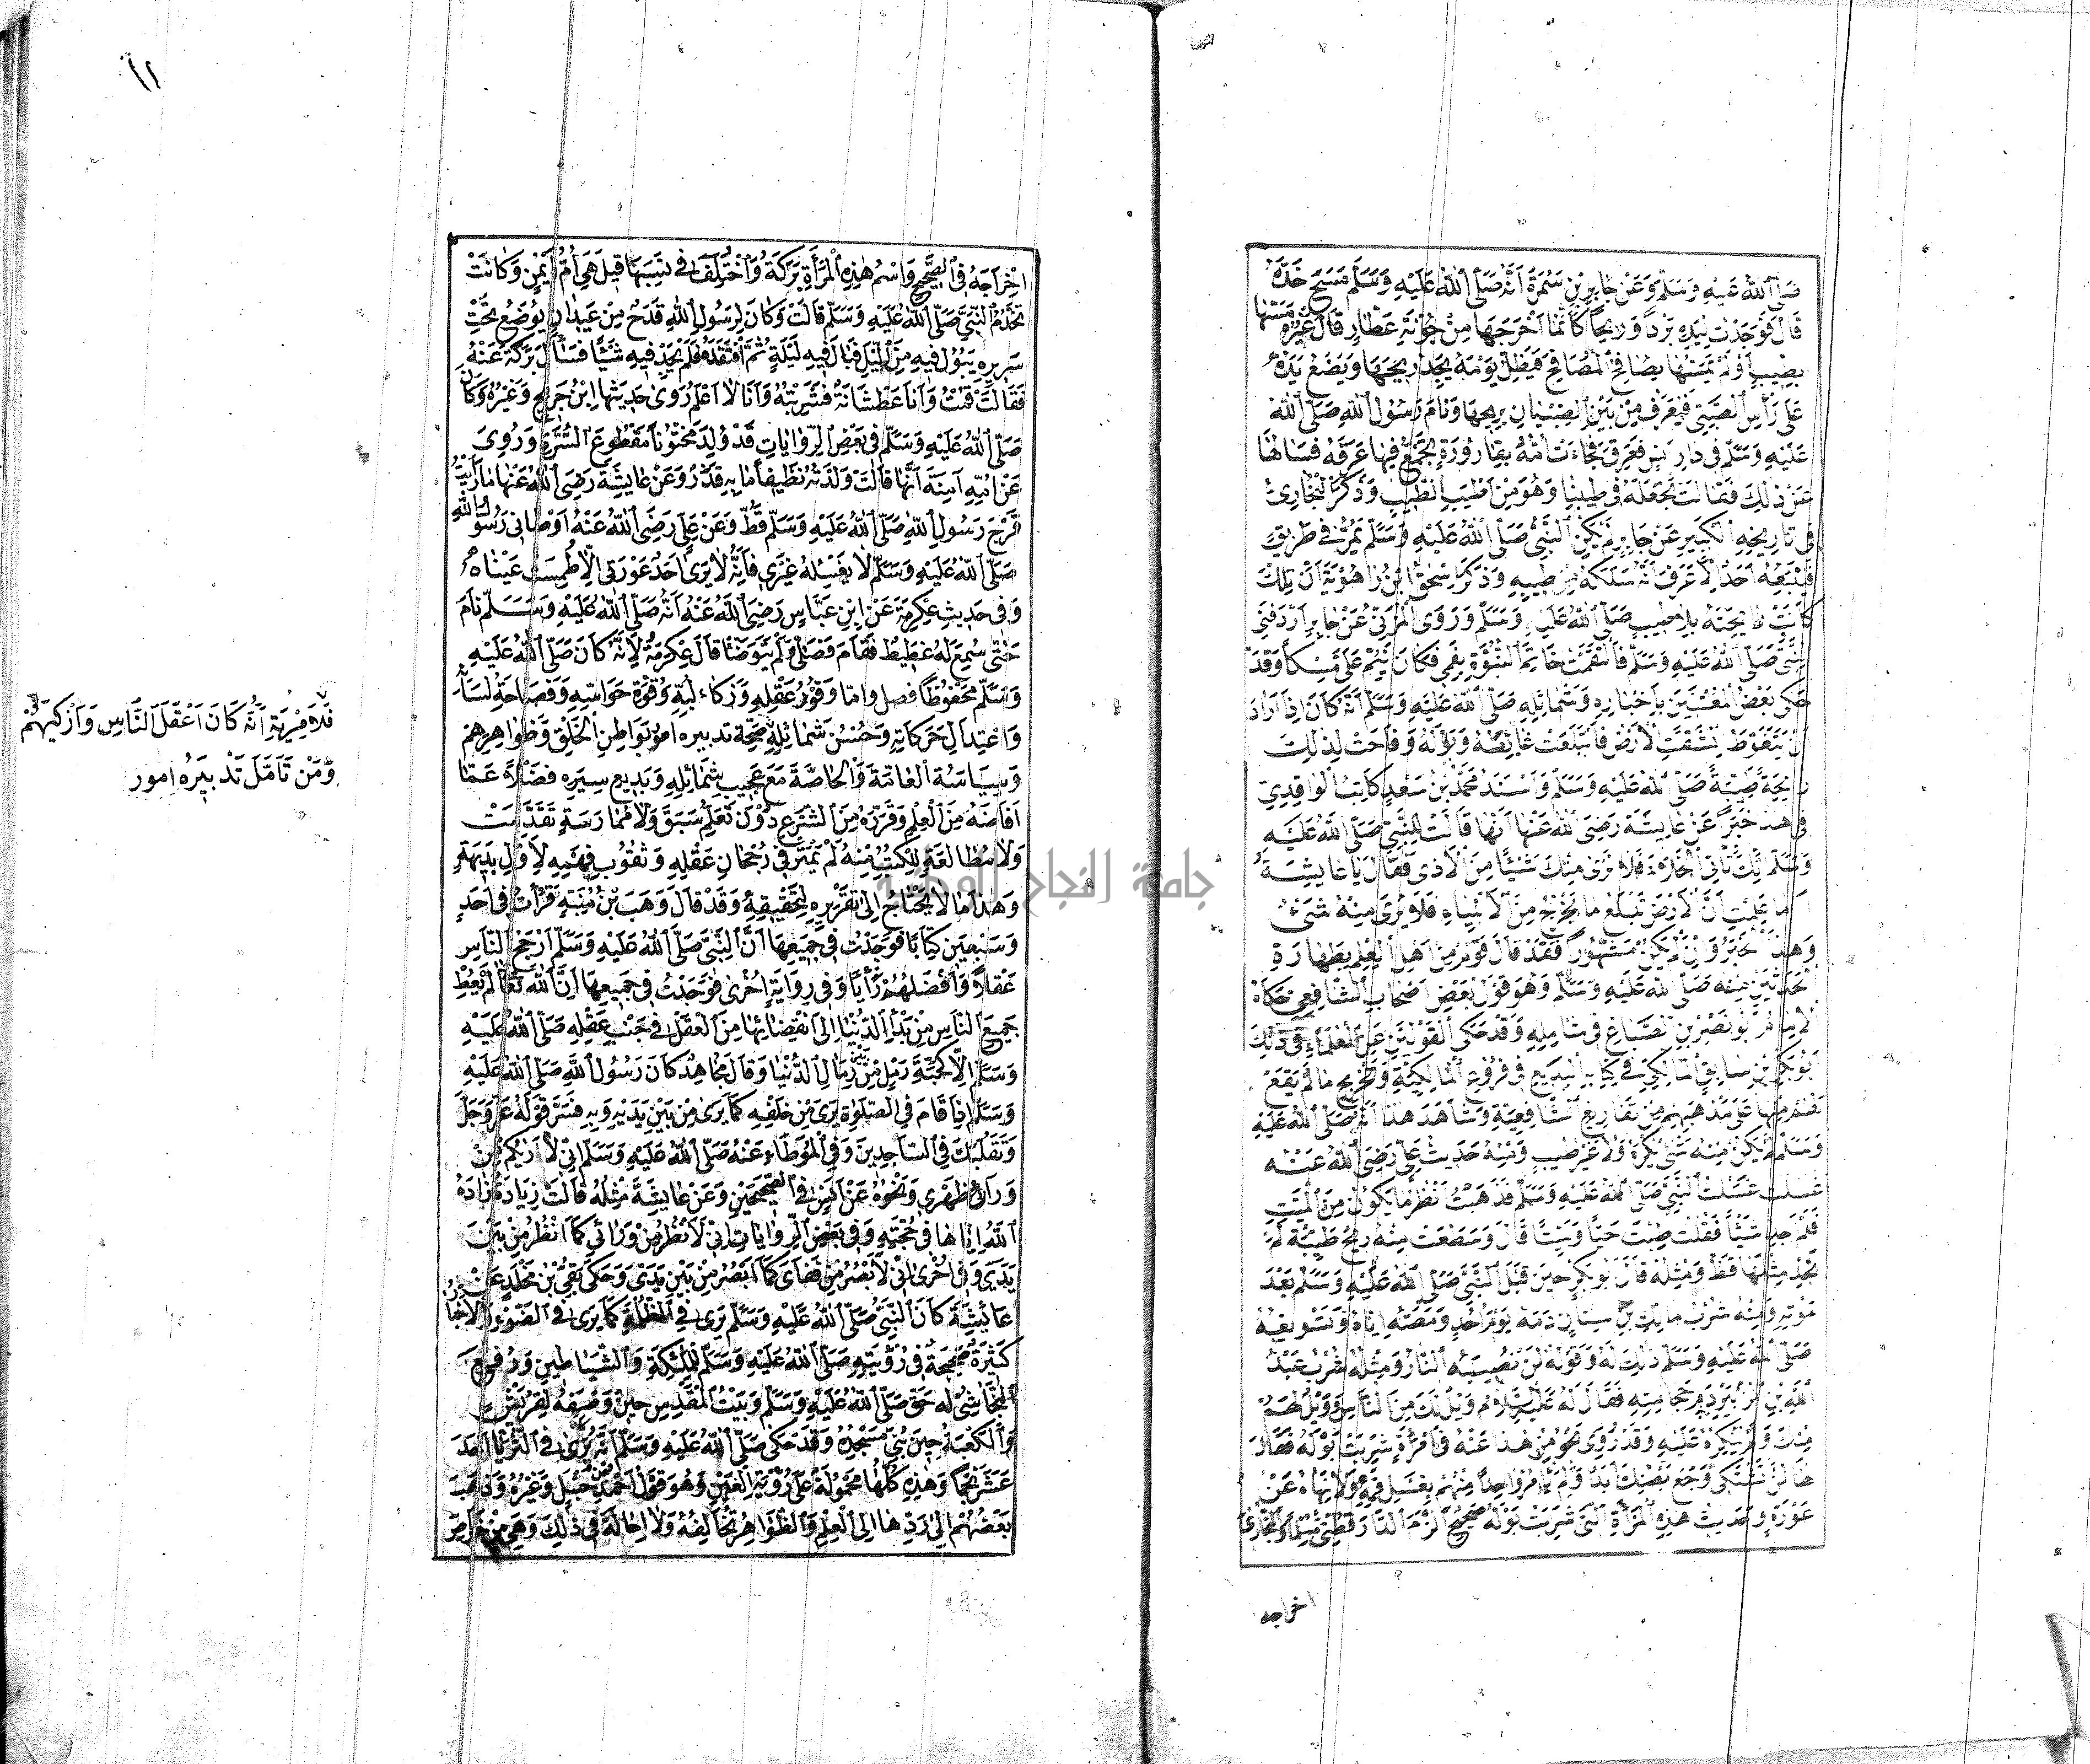 صَلَّى ٱللهُ عَلَيْهِ وَسَلَّمَ وَعَنْ جَابِرِ بْنِ سَمُرَةَ اَنَّهُ صَلَّى ٱللهُ عَلَيْهِ وَسَلَّمَ مَسَحَ خَدَّهُ
قَالَ فَوَجَدْتُ لِيَدِهِ بَرْدًا وَرِيحًا كَأَنَّمَا اَخْرَجَهَا مِنْ جُوْنَةِ عَطَّارٍ قَالَ غَيْرُهُ مَسَّهَا
بِطِيبٍ اَوْ لَمْ يَمَسَّهَا يُصَافِحُ ٱلْمُصَافِحَ فَيَظَلُّ يَوْمَهُ يَجِدُ رِيحَهَا وَيَضَعُ يَدَهُ
عَلَى رَأْسِ ٱلصَّبِيِّ فَيُعْرَفُ مِنْ بَيْنِ ٱلصِّبْيَانِ بِرِيحِهَا وَنَامَ رَسُولُ ٱللهِ صَلَّى ٱللهُ
عَلَيْهِ وَسَلَّمَ فِى دَارِ اَنَسٍ فَعَرِقَ فَجَاءَتْ اُمُّهُ بِقَارُورَةٍ تَجْمَعُ فِيهَا عَرَقَهُ فَسَأَلَهَا
عَنْ ذٰلِكَ فَقَالَتْ نَجْعَلُهُ فِى طِيبِنَا وَهُوَ مِنْ اَطْيَبِ ٱلطِّيبِ وَذَكَرَ ٱلْبُخَارِىُّ
فِى تَارِيخِهِ ٱلْكَبِيرِ عَنْ جَابِرٍ لَمْ يَكُنِ ٱلنَّبِىُّ صَلَّى ٱللهُ عَلَيْهِ وَسَلَّمَ يَمُرُّ فِى طَرِيقٍ
فَيَتْبَعُهُ اَحَدٌ اِلَّا عَرَفَ اَنَّهُ سَلَكَهُ مِنْ طِيبِهِ وَذَكَرَ اِسْحٰقُ ابْنُ رَاهُوَيَةَ اَنَّ تِلْكَ
كَانَتْ رَايِحَتَهُ بِلَا طِيبٍ صَلَّى ٱللهُ عَلَيْهِ وَسَلَّمَ وَرَوَى ٱلْمُزَنِىُّ عَنْ جَابِرٍ اَرْدَفَنِى
ٱلنَّبِىُّ صَلَّى ٱللهُ عَلَيْهِ وَسَلَّمَ فَٱلْتَقَمْتُ خَاتَمَ ٱلنُّبُوَّةِ بِفَمِى فَكَانَ يَنِمُّ عَلَىَّ مِسْكًا وَقَدْ
حَكَى بَعْضُ ٱلْمُعْتَنِينَ بِأَخْبَارِهِ وَشَمَائِلِهِ صَلَّى ٱللهُ عَلَيْهِ وَسَلَّمَ اَنَّهُ كَانَ اِذَا اَرَادَ
اَنْ يَتَغَوَّطَ ٱنْشَقَّتِ ٱلْاَرْضُ فَٱبْتَلَعَتْ غَائِطَهُ وَبَوْلَهُ وَفَاحَتْ لِذٰلِكَ
رَايِحَةٌ طَيِّبَةٌ صَلَّى ٱللهُ عَلَيْهِ وَسَلَّمَ وَاَسْنَدَ مُحَمَّدُ بْنُ سَعْدٍ كَاتِبُ ٱلْوَاقِدِىِّ
فِى هٰذَا خَبَرًا عَنْ عَايِشَةَ رَضِىَ ٱللهُ عَنْهَا اَنَّهَا قَالَتْ لِلنَّبِىِّ صَلَّى ٱللهُ عَلَيْهِ
وَسَلَّمَ اِنَّكَ تَأْتِى ٱلْخَلَاءَ فَلَا نَرَى مِنْكَ شَيْئًا مِنَ ٱلْاَذَى فَقَالَ يَا عَايِشَةُ
اَوَ مَا عَلِمْتِ اَنَّ ٱلْاَرْضَ تَبْتَلِعُ مَا يَخْرُجُ مِنَ ٱلْاَنْبِيَاءِ فَلَا يُرَى مِنْهُ شَىْءٌ
وَهٰذَا ٱلْخَبَرُ وَاِنْ لَمْ يَكُنْ مَشْهُورًا فَقَدْ قَالَ قَوْمٌ مِنْ اَهْلِ ٱلْعِلْمِ بِطَهَارَةِ
ٱلْحَدَثَيْنِ مِنْهُ صَلَّى ٱللهُ عَلَيْهِ وَسَلَّمَ وَهُوَ قَوْلُ بَعْضِ اَصْحَابِ ٱلشَّافِعِىِّ حَكَاهُ
ٱلْاِمَامُ اَبُو نَصْرِ بْنُ ٱلصَّبَّاغِ فِى شَامِلِهِ وَقَدْ حَكَى ٱلْقَوْلَيْنِ عَنِ ٱلْعُلَمَاءِ فِى ذٰلِكَ
اَبُو بَكْرِ بْنُ سَابِقٍ ٱلْمَالِكِىُّ فِى كِتَابِهِ ٱلْبَدِيعِ فِى فُرُوعِ ٱلْمَالِكِيَّةِ وَتَخْرِيجِ مَا لَمْ يَقَعْ
لَهُمْ مِنْهَا عَلَى مَذْهَبِهِمْ مِنْ تَفَارِيعِ ٱلشَّافِعِيَّةِ وَشَاهِدُ هٰذَا اَنَّهُ صَلَّى ٱللهُ عَلَيْهِ
وَسَلَّمَ لَمْ يَكُنْ مِنْهُ شَىْءٌ يُكْرَهُ وَلَا غَيْرُ طَيِّبٍ وَمِنْهُ حَدِيثُ عَلِىٍّ رَضِىَ ٱللهُ عَنْهُ
غَسَّلْتُ ٱلنَّبِىَّ صَلَّى ٱللهُ عَلَيْهِ وَسَلَّمَ فَذَهَبْتُ اَنْظُرُ مَا يَكُونُ مِنَ ٱلْمَيِّتِ
فَلَمْ اَجِدْ شَيْئًا فَقُلْتُ طِبْتَ حَيًّا وَمَيِّتًا قَالَ وَسَطَعَتْ مِنْهُ رِيحٌ طَيِّبَةٌ لَمْ
نَجِدْ مِثْلَهَا قَطُّ وَمِثْلُهُ قَالَ اَبُو بَكْرٍ حِينَ قَبَّلَ ٱلنَّبِىَّ صَلَّى ٱللهُ عَلَيْهِ وَسَلَّمَ بَعْدَ
مَوْتِهِ وَمِنْهُ شُرْبُ مَالِكِ بْنِ سِنَانٍ دَمَهُ يَوْمَ اُحُدٍ وَمَصُّهُ اِيَّاهُ وَتَسْوِيغُهُ
صَلَّى ٱللهُ عَلَيْهِ وَسَلَّمَ ذٰلِكَ لَهُ وَقَوْلُهُ لَنْ تُصِيبَهُ ٱلنَّارُ وَمِثْلُهُ شُرْبُ عَبْدِ
ٱللهِ بْنِ ٱلزُّبَيْرِ دَمَ حِجَامَتِهِ فَقَالَ لَهُ عَلَيْهِ ٱلسَّلَامُ وَيْلٌ لَكَ مِنَ ٱلنَّاسِ وَوَيْلٌ لَهُمْ
مِنْكَ وَلَمْ يُنْكِرْهُ عَلَيْهِ وَقَدْ رُوِىَ نَحْوٌ مِنْ هٰذَا عَنْهُ فِى امْرَأَةٍ شَرِبَتْ بَوْلَهُ فَقَالَ
لَهَا لَنْ تَشْتَكِى وَجَعَ بَطْنِكِ اَبَدًا وَلَمْ يَأْمُرْ وَاحِدًا مِنْهُمْ بِغَسْلِ فَمٍ وَلَا نَهَاهُ عَنْ
عَوْدَةٍ وَحَدِيثُ هٰذِهِ ٱلْمَرْأَةِ ٱلَّتِى شَرِبَتْ بَوْلَهُ صَحِيحٌ اَلْزَمَ ٱلدَّارَقُطْنِىُّ مُسْلِمًا وَٱلْبُخَارِىَّ
اخراجه
١١
اِخْرَاجَهُ فِى ٱلصَّحِيحِ وَاسْمُ هٰذِهِ ٱلْمَرْأَةِ بَرَكَةُ وَٱخْتُلِفَ فِى نَسَبِهَا قِيلَ هِىَ اُمُّ اَيْمَنٍ وَكَانَتْ
تَخْدُمُ ٱلنَّبِىَّ صَلَّى ٱللهُ عَلَيْهِ وَسَلَّمَ قَالَتْ وَكَانَ لِرَسُولِ ٱللهِ قَدَحٌ مِنْ عَيْدَانٍ يُوضَعُ تَحْتَ
سَرِيرِهِ يَبُولُ فِيهِ مِنَ ٱللَّيْلِ فَبَالَ فِيهِ لَيْلَةً ثُمَّ ٱفْتَقَدَهُ فَلَمْ يَجِدْ فِيهِ شَيْئًا فَسَأَلَ بَرَكَةَ عَنْهُ
فَقَالَتْ قُمْتُ وَاَنَا عَطْشَانَةٌ فَشَرِبْتُهُ وَاَنَا لَا اَعْلَمُ رَوَى حَدِيثَهَا ابْنُ جُرَيْجٍ وَغَيْرُهُ وَكَانَ
صَلَّى ٱللهُ عَلَيْهِ وَسَلَّمَ فِى بَعْضِ ٱلرِّوَايَاتِ قَدْ وُلِدَ مَخْتُونًا مَقْطُوعَ ٱلسُّرَّةِ وَرُوِىَ
عَنْ اُمِّهِ آمِنَةَ اَنَّهَا قَالَتْ وَلَدْتُهُ نَظِيفًا مَا بِهِ قَذَرٌ وَعَنْ عَايِشَةَ رَضِىَ ٱللهُ عَنْهَا مَا رَأَيْتُ
فَرْجَ رَسُولِ ٱللهِ صَلَّى ٱللهُ عَلَيْهِ وَسَلَّمَ قَطُّ وَعَنْ عَلِىٍّ رَضِىَ ٱللهُ عَنْهُ اَوْصَانِى رَسُولُ ٱللهِ
صَلَّى ٱللهُ عَلَيْهِ وَسَلَّمَ لَا يَغْسِلُهُ غَيْرِى فَاِنَّهُ لَا يَرَى اَحَدٌ عَوْرَتِى اِلَّا طُمِسَتْ عَيْنَاهُ
وَفِى حَدِيثِ عِكْرِمَةَ عَنْ ابْنِ عَبَّاسٍ رَضِىَ ٱللهُ عَنْهُ اَنَّهُ صَلَّى ٱللهُ عَلَيْهِ وَسَلَّمَ نَامَ
حَتَّى سُمِعَ لَهُ غَطِيطٌ فَقَامَ فَصَلَّى وَلَمْ يَتَوَضَّأْ قَالَ عِكْرِمَةُ لِاَنَّهُ كَانَ صَلَّى ٱللهُ عَلَيْهِ
وَسَلَّمَ مَحْفُوظًا فصل واما وَفُورُ عَقْلِهِ وَذَكَاءُ لُبِّهِ وَقُوَّةُ حَوَاسِّهِ وَفَصَاحَةُ لِسَانِهِ
وَاعْتِدَالُ حَرَكَاتِهِ وَحُسْنُ شَمَائِلِهِ تدبيره امور بَوَاطِنِ ٱلْخَلْقِ وَظَوَاهِرِهِمْ
وَسِيَاسَةَ ٱلْعَامَّةِ وَٱلْخَاصَّةِ مَعَ عَجِيبِ شَمَائِلِهِ وَبَدِيعِ سِيَرِهِ فَضْلًا عَمَّا
اَفَاضَهُ مِنَ ٱلْعِلْمِ وَقَرَّرَهُ مِنَ ٱلشَّرْعِ دُونَ تَعَلُّمٍ سَبَقَ وَلَا مُمَارَسَةٍ تَقَدَّمَتْ
وَلَا مُطَالَعَةٍ لِلْكُتُبِ مِنْهُ لَمْ يَمْتَرِ فِى رُجْحَانِ عَقْلِهِ وَثُقُوبِ فَهْمِهِ لِاَوَّلِ بَدِيهَةٍ
وَهٰذَا مَا لَا يَحْتَاجُ اِلَى تَقْرِيرِهِ لِتَحْقِيقِهِ وَقَدْ قَالَ وَهَبُ بْنُ مُنَبِّهٍ قَرَأْتُ فِى اَحَدٍ
وَسَبْعِينَ كِتَابًا فَوَجَدْتُ فِى جَمِيعِهَا اَنَّ ٱلنَّبِىَّ صَلَّى ٱللهُ عَلَيْهِ وَسَلَّمَ اَرْجَحُ ٱلنَّاسِ
عَقْلًا وَاَفْضَلُهُمْ رَأْيًا وَفِى رِوَايَةٍ اُخْرَى فَوَجَدْتُ فِى جَمِيعِهَا اَنَّ ٱللهَ تَعَالٰى لَمْ يُعْطِ
جَمِيعَ ٱلنَّاسِ مِنْ بَدْءِ ٱلدُّنْيَا اِلَى ٱنْقِضَائِهَا مِنَ ٱلْعَقْلِ فِى جَنْبِ عَقْلِهِ صَلَّى ٱللهُ عَلَيْهِ
وَسَلَّمَ اِلَّا كَحَبَّةِ رَمْلٍ مِنْ رِمَالِ ٱلدُّنْيَا وَقَالَ مُجَاهِدٌ كَانَ رَسُولُ ٱللهِ صَلَّى ٱللهُ عَلَيْهِ
وَسَلَّمَ اِذَا قَامَ فِى ٱلصَّلٰوةِ يَرَى مِنْ خَلْفِهِ كَمَا يَرَى مِنْ بَيْنِ يَدَيْهِ وَبِهِ فُسِّرَ قَوْلُهُ عَزَّ وَجَلَّ
وَتَقَلُّبَكَ فِى ٱلسَّاجِدِينَ وَفِى ٱلْمُوَطَّأِ عَنْهُ صَلَّى ٱللهُ عَلَيْهِ وَسَلَّمَ اِنِّى لَاَرَيٰكُمْ مِنْ
وَرَاءِ ظَهْرِى وَنَحْوُهُ عَنْ اَنَسٍ فِى ٱلصَّحِيحَيْنِ وَعَنْ عَايِشَةَ مِثْلُهُ قَالَتْ زِيَادَةٌ زَادَهُ
ٱللهُ اِيَّاهَا فِى حُجَّتِهِ وَفِى بَعْضِ ٱلرِّوَايَاتِ اِنِّى لَاَنْظُرُ مِنْ وَرَائِى كَمَا اَنْظُرُ مِنْ بَيْنِ
يَدَىَّ وَفِى اُخْرَى اِنِّى لَاُبْصِرُ مِنْ قَفَاىَ كَمَا اُبْصِرُ مِنْ بَيْنِ يَدَىَّ وَحَكَى بَقِىُّ بْنُ مَخْلَدٍ عَنْ
عَائِشَةَ كَانَ ٱلنَّبِىُّ صَلَّى ٱللهُ عَلَيْهِ وَسَلَّمَ يَرَى فِى ٱلظُّلْمَةِ كَمَا يَرَى فِى ٱلضَّوْءِ وَٱلْاَخْبَارُ
كَثِيرَةٌ صَحِيحَةٌ فِى رُؤْيَتِهِ صَلَّى ٱللهُ عَلَيْهِ وَسَلَّمَ لِلْمَلٰئِكَةِ وَٱلشَّيَاطِينِ وَرُفِعَ
ٱلنَّجَاشِىُّ لَهُ حَتَّى صَلَّى ٱللهُ عَلَيْهِ وَسَلَّمَ وَبَيْتُ ٱلْمَقْدِسِ حِينَ وَصَفَهُ لِقُرَيْشٍ
وَٱلْكَعْبَةُ حِينَ بَنَى مَسْجِدَهُ وَقَدْ حُكِىَ صَلَّى ٱللهُ عَلَيْهِ وَسَلَّمَ اَنَّهُ يَرَى فِى ٱلثُّرَيَّا اَحَدَ
عَشَرَ نَجْمًا وَهٰذِهِ كُلُّهَا مَحْمُولَةٌ عَلَى رُؤْيَةِ ٱلْعَيْنِ وَهُوَ قَوْلُ اَحْمَدَ بْنِ حَنْبَلٍ وَغَيْرِهِ وَذَهَبَ
بَعْضُهُمْ اِلَى رَدِّهَا اِلَى ٱلْعِلْمِ وَٱلظَّوَاهِرُ تُخَالِفُهُ وَلَا اِحَالَةَ فِى ذٰلِكَ وَهِىَ مِنْ خَوَاصِّ
فَلَا مِرْيَةَ اَنَّهُ كَانَ اَعْقَلَ ٱلنَّاسِ وَاَزْكَيَهُمْ
وَمَنْ تَأَمَّلَ تَدْبِيرَهُ امور
جامعة النجاح الوطنية